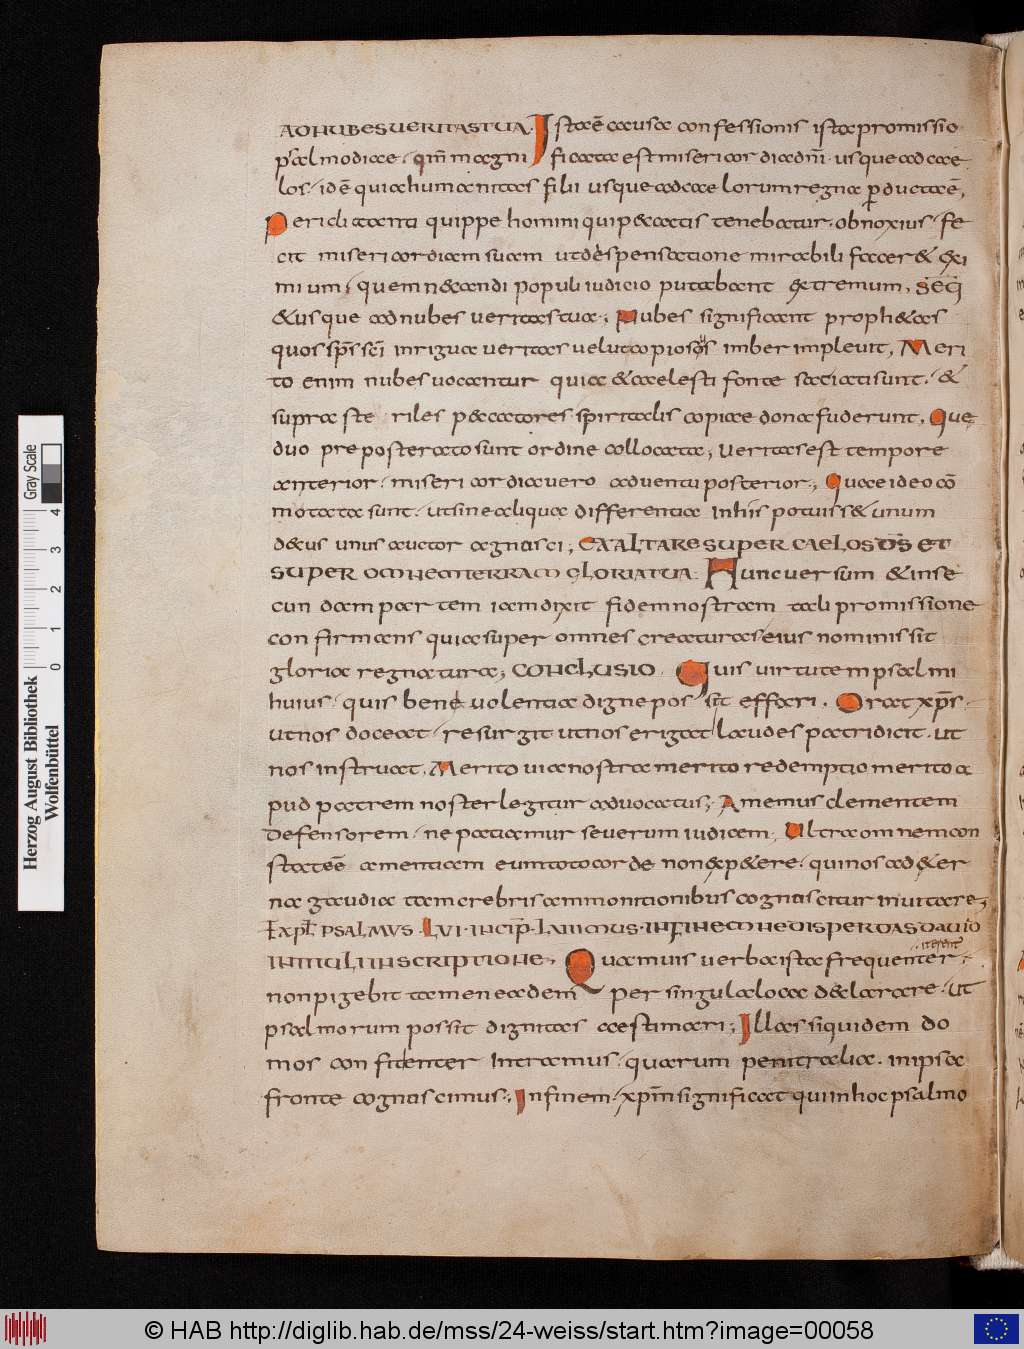 AD NUBES UERITAS TUA. Ista ē causa confessionis ista promissio
psalmodiae. qm̄ magnificata est misericordia dn̄i. usque ad cae
los. id ē quia humanitas filii usque ad caelorum regna ꝑducta ē,
Periclitanti quippe homini qui peccatis tenebatur. obnoxius. fe
cit misericordiam suam ut despensatione mirabili faceret exi
mium. quem necandi populi iudicio putabant extremum,
& usque ad nubes ueritas tua; Nubes significant prophetas
quos sp̄s sc̄i inrigua ueritas uelut copiosus imber impleuit, Meri
to enim nubes uocantur quia & caelesti fonte satiati sunt. &
supra steriles peccatores spiritalis copiae dona fuderunt. Que
duo prepostero to sunt ordine collocata, ueritas est tempore
anterior. misericordia uero aduentu posterior; Quae ideo cō
motata sunt. ut sine aliqua differentia in his potuisset unum
decus unus auctor agnosci; EXALTARE SUPER CAELOS DS̄ ET
SUPER OMNEM TERRAM GLORIA TUA. Hunc uersum & in se
cundam partem iam dixit fidem nostram tali promissione
confirmans quia super omnes creaturas eius nominis sit
gloria regnatura; CONCLUSIO. Quis uirtutem psalmi
huius. quis beneuolentiae digne possit effari. Orat xp̄s.
ut nos doceat. resurgit ut nos erigat laudes patri dicit. ut
nos instruat. Merito uia nostra merito redemptio merito a
pud patrem noster legitur aduocatus; Amemus clementem
defensorem. ne patiamur seuerum iudicem. Ultra omnem con
stat ēē amentiam eum toto corde non expetere. qui nos ad aeter
na gaudia tam crebris ammonitionibus cognoscitur inuitare;
EXPL PSALMUS LVI. INCIP̄ LVII IN FINEM NE DISPERDAS DAUID
IN TITULI INSCRIPTIONE. Quamuis uerba ista frequenter.
non pigebit tamen eadem per singula loca declarare. ut
psalmorum possit dignitas aestimari; Illas siquidem do
mos confidenter intramus. quarum penitralia. in ipsa
fronte cognoscimus; In finem. xp̄m significat qui in hoc psalmo
Gray Scale
4
3
2
1
0
Herzog August Bibliothek
Wolfenbüttel
© HAB http://diglib.hab.de/mss/24-weiss/start.htm?image=00058